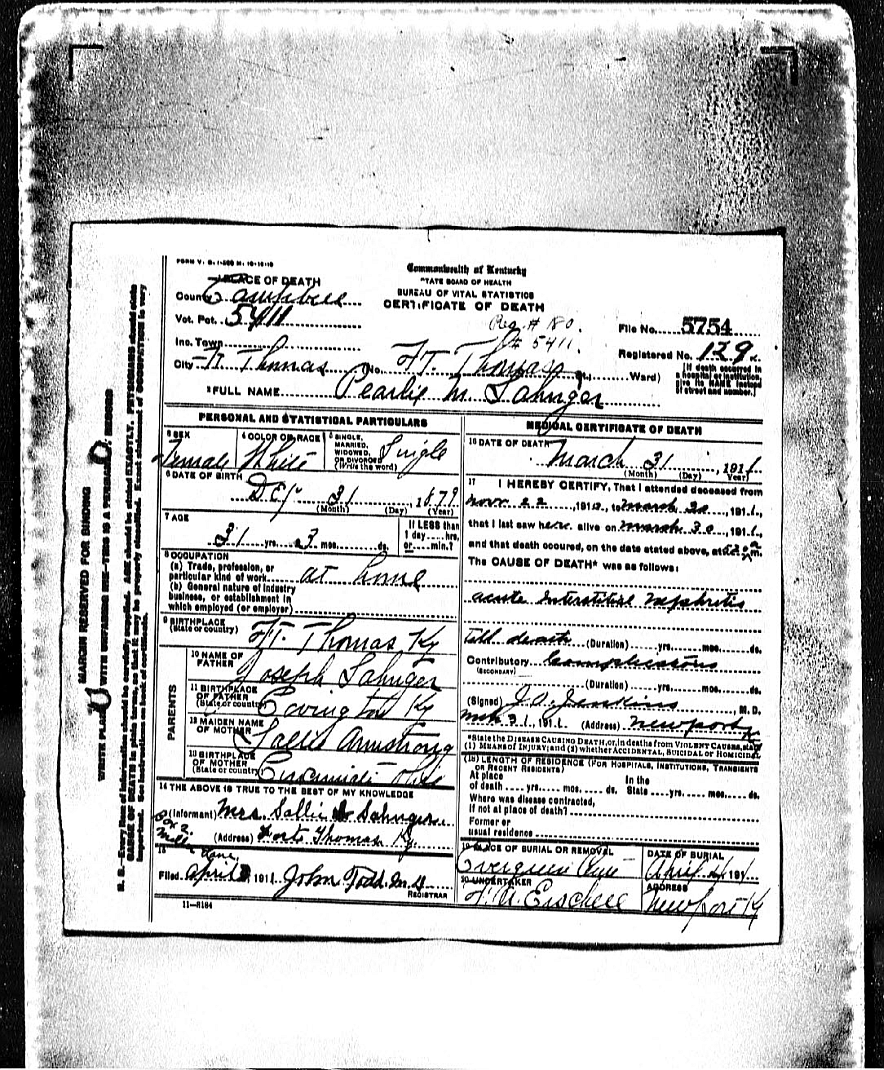 FORM V. S. 1-
Commonwealth of Kentucky
STATE BOARD OF HEALTH
BUREAU OF VITAL STATISTICS
CERTIFICATE OF DEATH
1 PLACE OF DEATH
County Campbell
Vot. Pct. 5411
Inc. Town
City Ft Thomas No. FT. Thomas St., Ward)
Reg. # 80.
# 5411.
File No. 5754
Registered No. 129
[If death occurred in a hospital or institution, give its NAME instead of street and number.]
2 FULL NAME Pearlie M. Sahnger
PERSONAL AND STATISTICAL PARTICULARS
3 SEX Female
4 COLOR OR RACE White
5 SINGLE, MARRIED, WIDOWED, OR DIVORCED (Write the word) Single
6 DATE OF BIRTH
31 1879
(Month) (Day) (Year)
7 AGE
31 yrs. 3 mos. ds.
If LESS than 1 day hrs. or min.?
8 OCCUPATION
(a) Trade, profession, or particular kind of work at home
(b) General nature of industry business, or establishment in which employed (or employer)
9 BIRTHPLACE (State or country) FT. Thomas Ky
PARENTS
10 NAME OF FATHER Joseph Sahnger
11 BIRTHPLACE OF FATHER (State or country) Covington Ky
12 MAIDEN NAME OF MOTHER Sallie Armstrong
13 BIRTHPLACE OF MOTHER (State or country) Cincinnati Ohio
14 THE ABOVE IS TRUE TO THE BEST OF MY KNOWLEDGE
(Informant) Mrs. Sallie Sahnger
(Address) Fort Thomas Ky.
Box 2.
15
Filed April 1911 John Todd M.D.
REGISTRAR
11-8184
MEDICAL CERTIFICATE OF DEATH
16 DATE OF DEATH
March 31, 1911
(Month) (Day) (Year)
17 I HEREBY CERTIFY, That I attended deceased from
Nov. 22, 191, to March 30, 1911,
that I last saw her alive on March 30, 1911,
and that death occured, on the date stated above, at
The CAUSE OF DEATH* was as follows:
acute Interstitial Nephritis
till death (Duration) yrs. mos. ds.
Contributory Complications
(SECONDARY)
(Duration) yrs. mos. ds.
(Signed) J.O. Jenkins, M.D.
Mch 31, 1911. (Address) Newport Ky
*State the DISEASE CAUSING DEATH, or, in deaths from VIOLENT CAUSES, state (1) MEANS OF INJURY; and (2) whether ACCIDENTAL, SUICIDAL or HOMICIDAL
(18) LENGTH OF RESIDENCE (FOR HOSPITALS, INSTITUTIONS, TRANSIENTS OR RECENT RESIDENTS)
At place of death yrs. mos. ds. In the State yrs. mos. ds.
Where was disease contracted, if not at place of death?
Former or usual residence
19 PLACE OF BURIAL OR REMOVAL Evergreen Cem
DATE OF BURIAL April 4, 191
20 UNDERTAKER
ADDRESS Newport Ky
MARGIN RESERVED FOR BINDING
WRITE PLAINLY WITH UNFADING INK—THIS IS A PERMANENT RECORD
N. B.—Every item of information should be carefully supplied. AGE should be stated EXACTLY. PHYSICIANS should state CAUSE OF DEATH in plain terms, so that it may be properly classified. Exact statement of OCCUPATION is very important. See instructions on back of certificate.